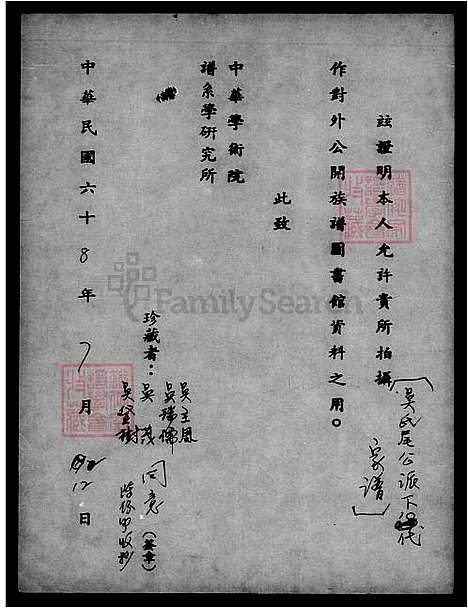 茲證明本人允許貴所拍攝
〔吳氏尾公派下 代
家譜〕
作對外公開族譜圖書館資料之用。
此致
中華學術院
譜系學研究所
珍藏者：
吳主恩
吳瑞儒
吳 茂
吳登樹
同意
（簽章）
中華民國六十8年7月12日
FamilySearch